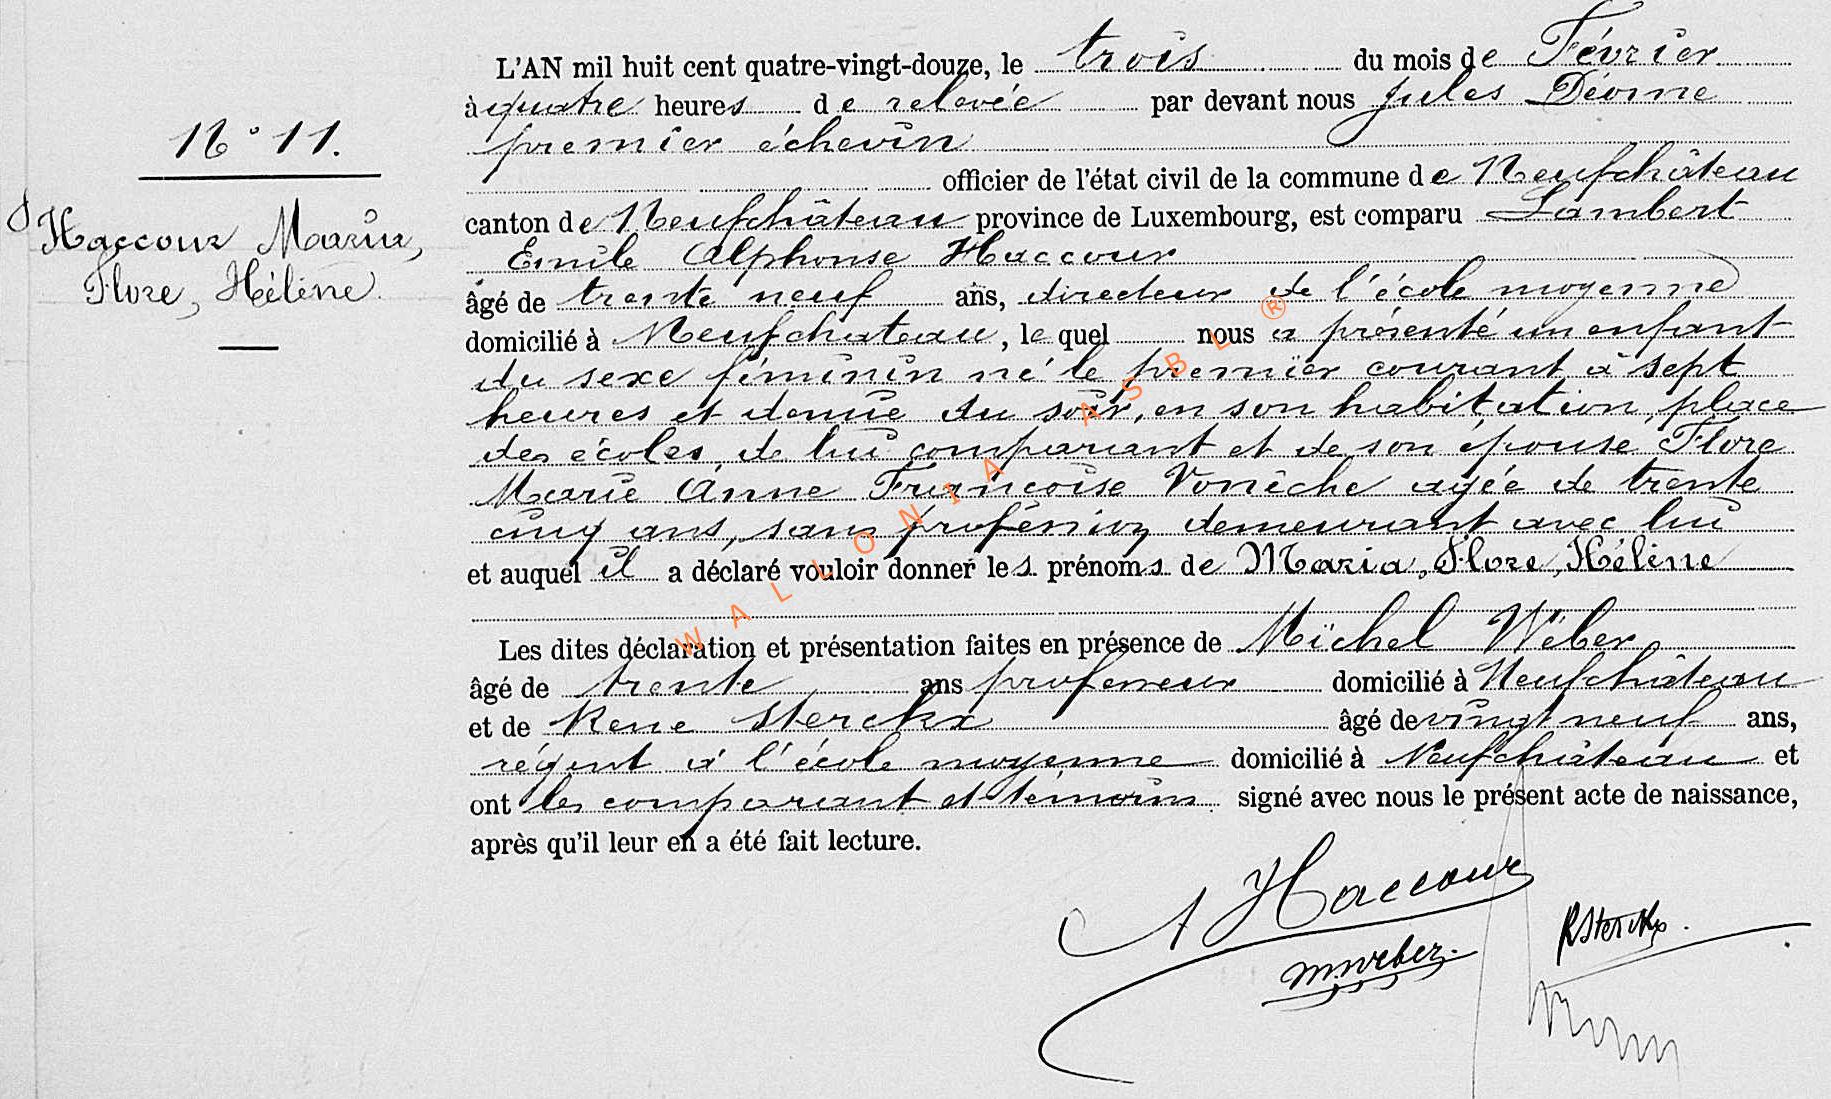 L'AN mil huit cent quatre-vingt-douze, le trois du mois de Février
à quatre heures de relevée par devant nous Jules Déome
premier échevin
officier de l'état civil de la commune de Neufchâteau
canton de Neufchâteau province de Luxembourg, est comparu Lambert
Emile Alphonse Haccour
âgé de trente neuf ans, directeur de l'école moyenne
domicilié à Neufchateau, le quel nous a présenté un enfant
du sexe féminin né le premier courant à sept
heures et demie du soir, en son habitation, place
des écoles, de lui comparant et de son épouse Flore
Marie Anne Françoise Vonêche agée de trente
cinq ans, sans profession demeurant avec lui
et auquel il a déclaré vouloir donner les prénoms de Maria, Flore, Hélène
Les dites déclaration et présentation faites en présence de Michel Wéber
âgé de trente ans professeur domicilié à Neufchâteau
et de Rene Sterckx âgé de vingt neuf ans,
régent à l'école moyenne domicilié à Neufchâteau et
ont les comparant et témoins signé avec nous le présent acte de naissance,
après qu'il leur en a été fait lecture.
N° 11.
Haccour Maria,
Flore, Hélène.
A Haccour
RSterckx.
m.weber.
WALLONIA ASBL ®